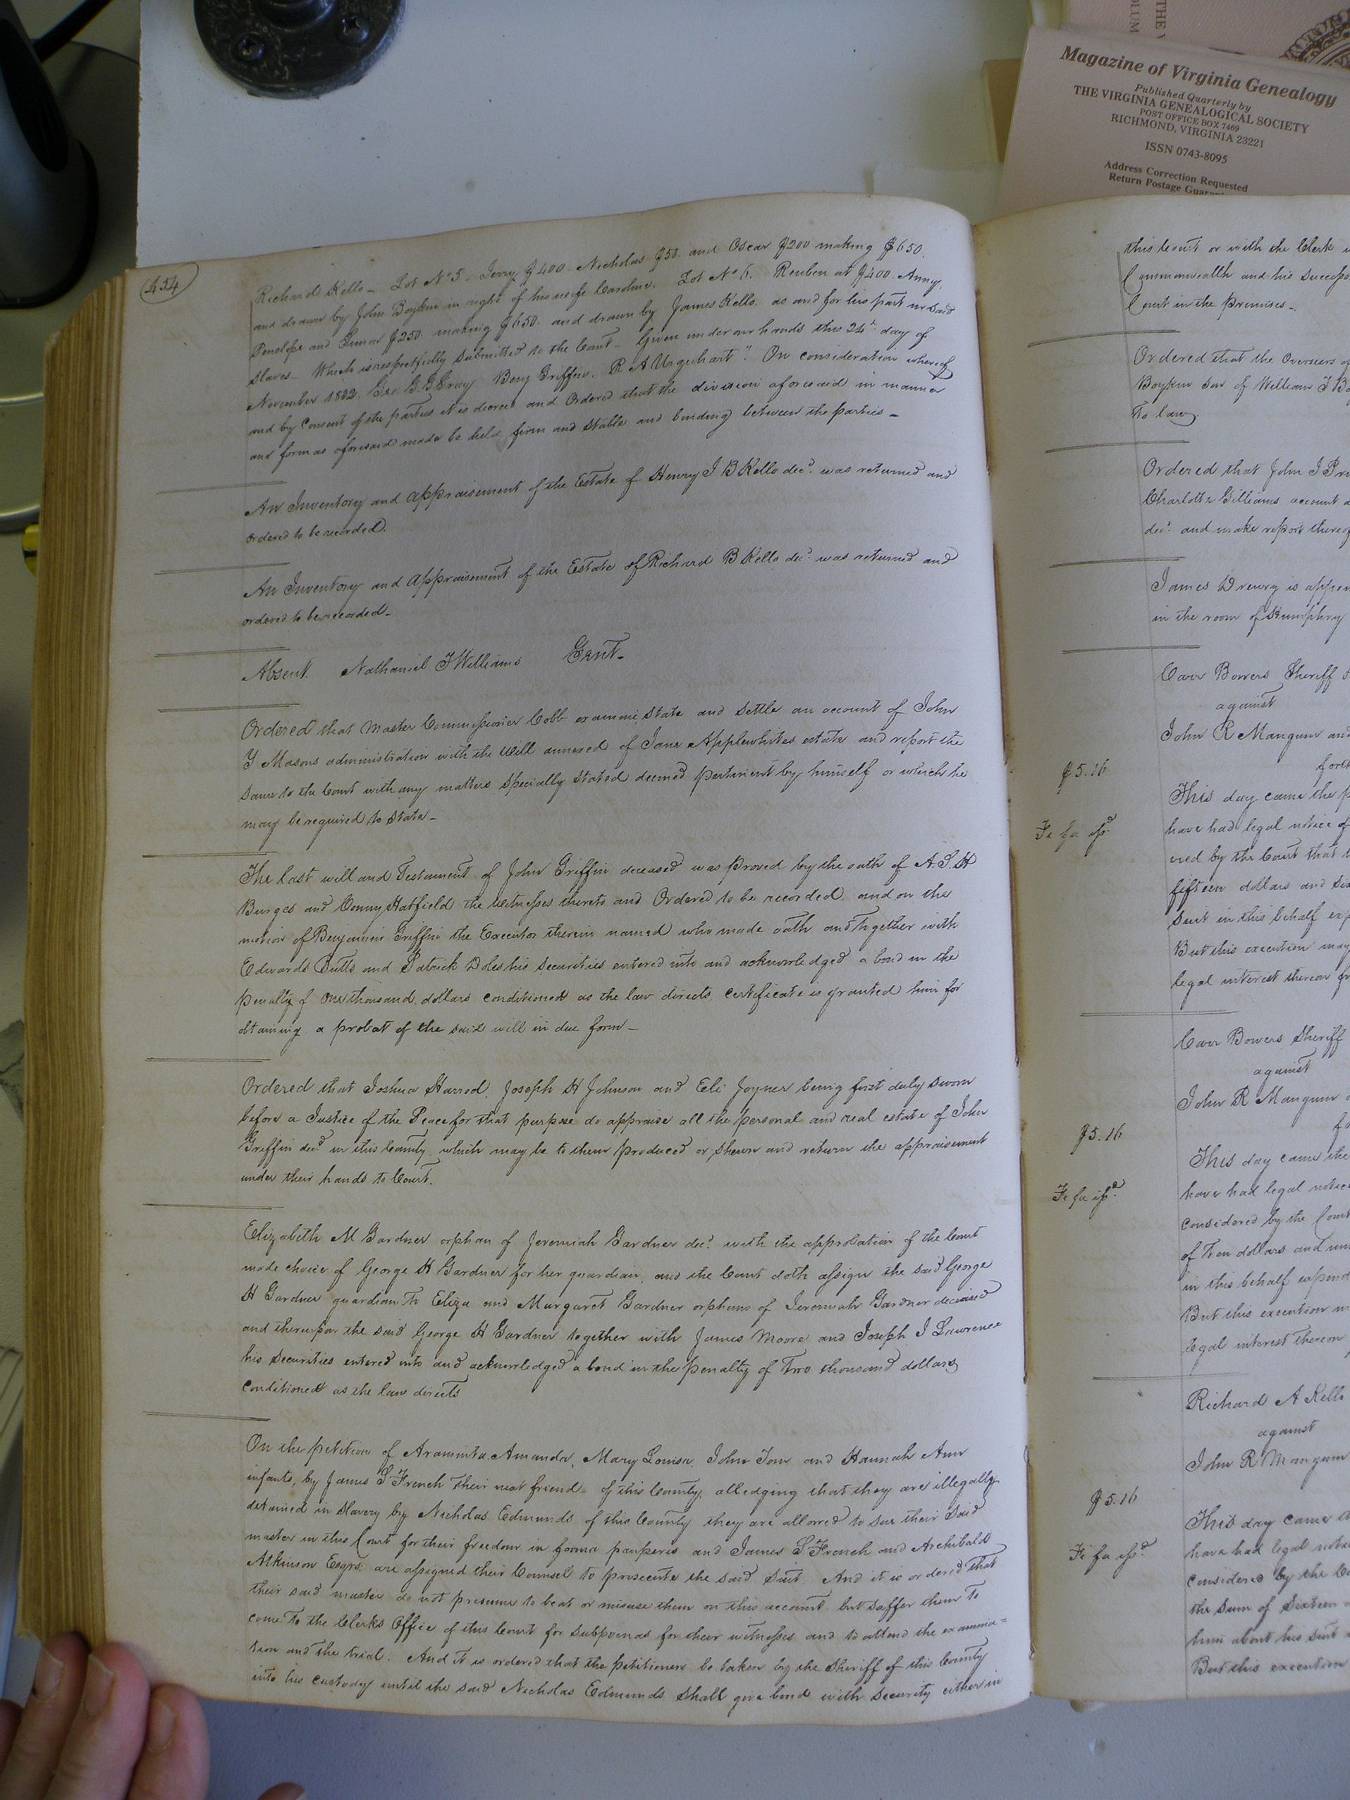 Magazine of Virginia Genealogy
Published Quarterly by
THE VIRGINIA GENEALOGICAL SOCIETY
POST OFFICE BOX 7469
RICHMOND, VIRGINIA 23221
ISSN 0743-8095
Address Correction Requested
Return Postage
434
Richard Kello - Lot No 5 - Jerry $400 - Nicholas $50. and Oscar $200 making $650.
and drawn by John Boykin in right of his wife Caroline. Lot No 6. Reuben at $400. Anny,
Penelope and $250 making $650. and drawn by James Kello. as and for his part in said
slaves - Which is respectfully submitted to the Court - Given under our hands this 24th day of
November 1832. Geo. Gray Benj Griffin. R A Urquhart". On consideration whereof
and by consent of the parties it is decreed and Ordered that the division aforesaid in manner
and form as aforesaid made be held firm and stable and binding between the parties -
An Inventory and appraisement of the Estate of Henry J B Kello decd. was returned and
ordered to be recorded.
An Inventory and appraisement of the Estate of Richard B Kello decd. was returned and
ordered to be recorded -
Absent. Nathaniel T Williams Gent -
Ordered that Master Commissioner Cobb examine state and settle an account of John
Y Masons administration with the will annexed of Jane Applewhites estate and report the
same to the Court with any matters specially stated deemed pertinent by himself or which he
may be required to state -
The last will and Testament of John Griffin deceased was proved by the oath of A. S. H
Burges and Conny Hatfield the witnesses thereto and Ordered to be recorded. and on the
motion of Benjamin Griffin the Executor therein named who made oath and together with
Edwards Butts and Patrick Doles his securities entered into and acknowledged a bond in the
penalty of one thousand dollars conditioned as the law directs certificate is granted him for
obtaining a probat of the said will in due form -
Ordered that Joshua Harrod, Joseph H Johnson and Eli Joyner being first duly sworn
before a Justice of the Peace for that purpose do appraise all the personal and real estate of John
Griffin decd in this County which may be to them produced or shewn and return the appraisement
under their hands to Court.
Elizabeth M Gardner orphan of Jeremiah Gardner decd. with the approbation of the Court
made choice of George H Gardner for her guardian, and the Court doth assign the said George
H Gardner guardian to Eliza and Margaret Gardner orphans of Jeremiah Gardner deceased
and thereupon the said George H Gardner together with James Moore and Joseph J Lawrence
his securities entered into and acknowledged a bond in the penalty of Two thousand dollars
conditioned as the law directs
On the petition of Araminta Amanda, Mary Louisa, John Tom and Hannah Ann
infants, by James S French their next friend of this County, alledging that they are illegally
detained in slavery by Nicholas Edmunds of this County they are allowed to sue their said
master in this Court for their freedom in forma pauperis and James S French and Archibald
Atkinson Esqrs. are assigned their Counsel to prosecute the said suit. And it is ordered that
their said master do not presume to beat or misuse them on this account. but suffer them to
come to the Clerks Office of this Court for subpoenas for their witnesses and to attend the examina=
tion and the trial. And it is ordered that the petitioners be taken by the Sheriff of this County
into his custody until the said Nicholas Edmunds shall give bond with security either in
this Court or with the Clerk
Commonwealth and his
Court in the Premises -
Ordered that the Overseers of
Boykin son of William
to law
Ordered that John J
Charlotte Gilliams account
decd. and make report thereof
James Drewry is
in the room of Humphry
Carr Bowers Sheriff
against
John R Mangum and
$5.16
This day came the
Fi fa issd
have had legal notice of
ered by the Court that
fifteen dollars and
suit in this behalf
But this execution may
legal interest thereon
Carr Bowers Sheriff
against
John R Mangum
$5.16
This day came the
Fi fa issd.
have had legal notice
considered by the Court
of Ten dollars and
in this behalf expend
But this execution
legal interest thereon
Richard A Kello
against
John R Mangum
$5.16
This day came
Fi fa issd.
have had legal notice
considered by the
the sum of Sixteen
him about his suit
But this execution